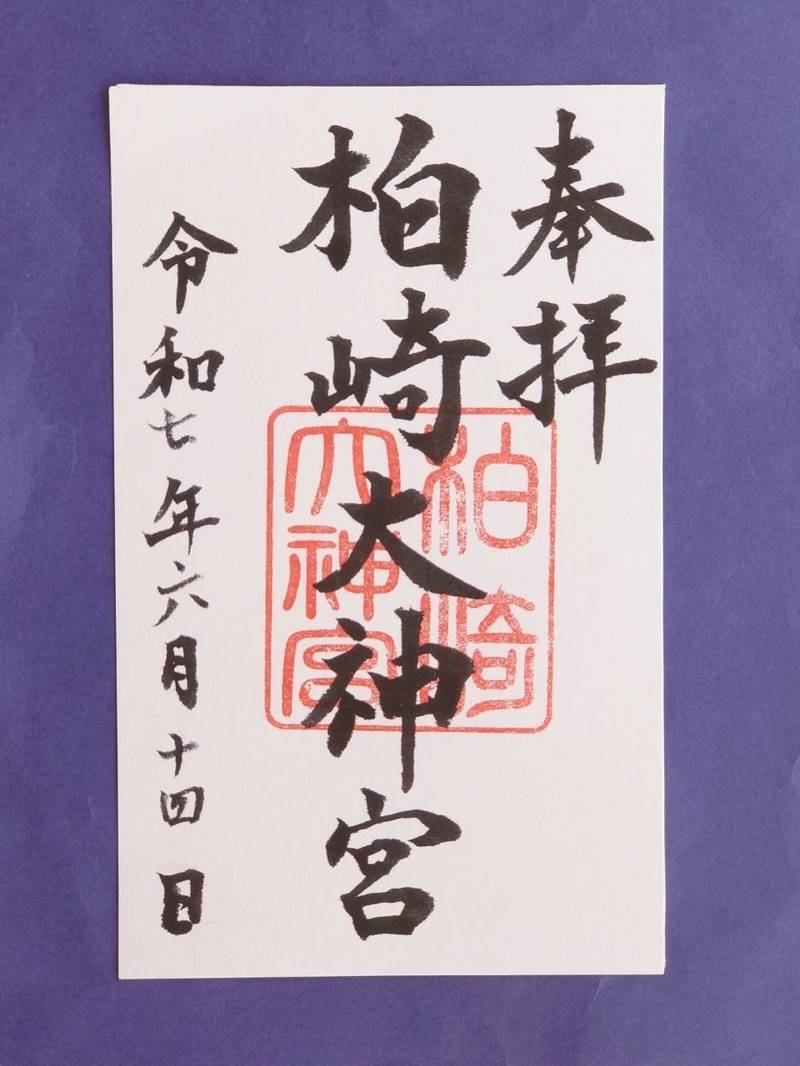 奉拝
柏崎大神宮
柏崎
大神宮
令和七年六月十四日